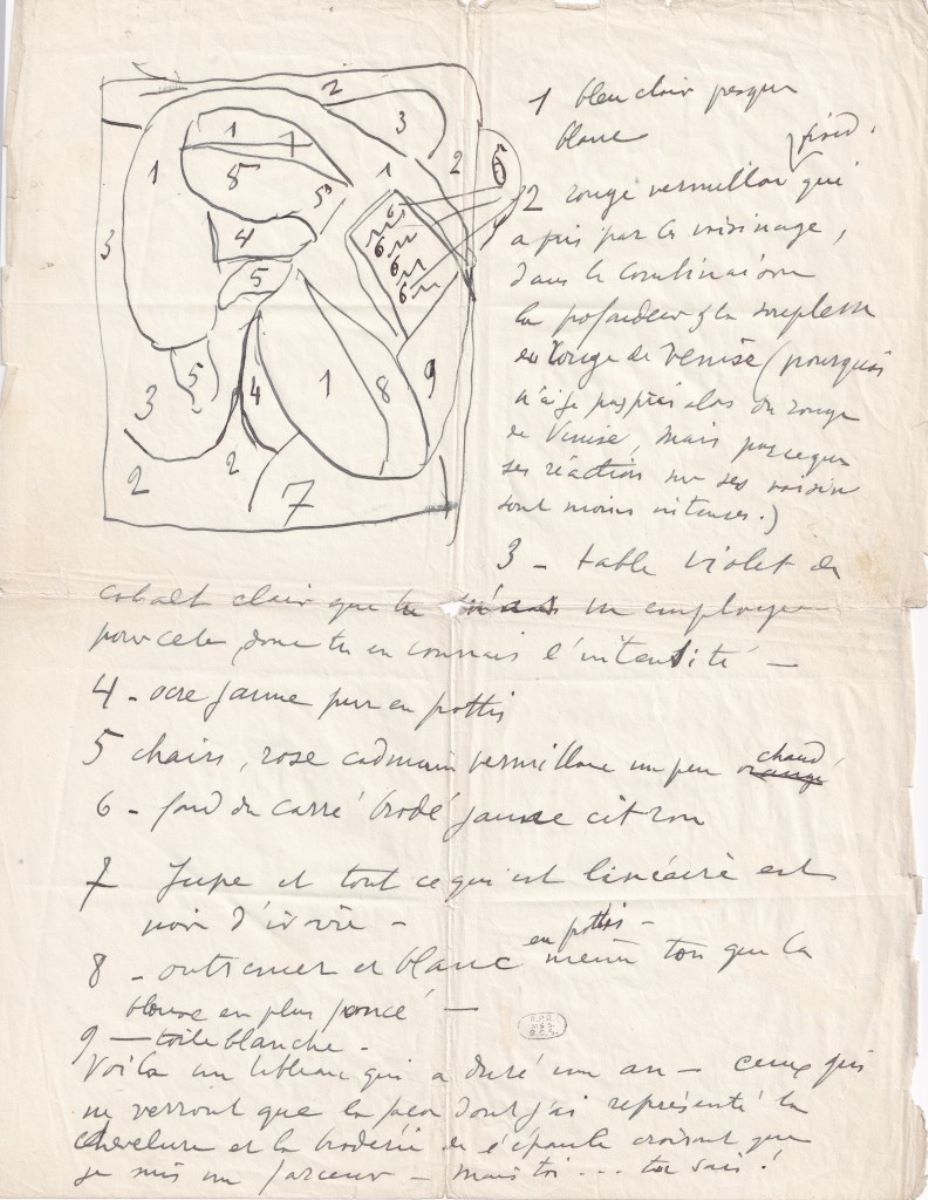 2
1
7
3
1
8
5
1
2
5
3
4
5
6
6
6
6
5
3
4
1
8
9
2
2
7
1 bleu clair presque
blanc
fond.
2 rouge vermillon qui
a pris par le voisinage,
dans la combinaison
la profondeur & la souplesse
du rouge de Venise (pourquoi
n'ai je pas pris alors du rouge
de Venise, mais parceque
ses réaction sur ses voisin
sont moins intenses.)
3 - table violet de
cobalt clair que tu m'as vu employer
pour cela, donc tu en connais l'intensité —
4 - ocre jaune pur en
5 chairs, rose cadmium vermillone un peu chaud
orangé
6 - fond du carré brodé jaune citron
7 Jupe et tout ce qui est linéaire est
noir d'ivoire -
8 - outremer et blanc en même ton que la
blouse en plus foncé —
9 — toile blanche -
Voilà un tableau qui a duré un an — ceux qui
ne verront que la façon dont j'ai représenté la
chevelure et la broderie de l'épaule croiront que
je suis un farceur — mais toi ... toi sais!